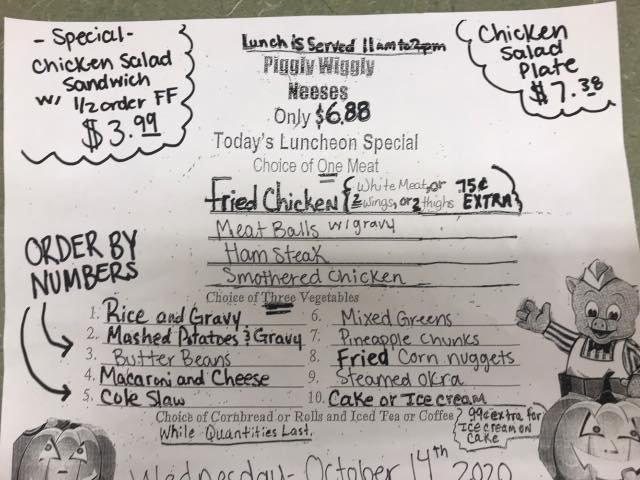 - Special -
Chicken Salad
Sandwich
w/ 1/2 order FF
$3.99
Lunch is Served 11am to 2pm
Piggly Wiggly
Neeses
Only $6.88
Today's Luncheon Special
Choice of One Meat
Chicken
Salad
Plate
$7.38
Fried Chicken { White Meat, or 75¢
2 wings, or 2 thighs EXTRA }
Meat Balls w/gravy
Ham Steak
Smothered Chicken
ORDER BY
NUMBERS
Choice of Three Vegetables
1. Rice and Gravy
2. Mashed Potatoes & Gravy
3. Butter Beans
4. Macaroni and Cheese
5. Cole Slaw
6. Mixed Greens
7. Pineapple chunks
8. Fried Corn nuggets
9. Steamed okra
10. Cake or Ice cream
Choice of Cornbread or Rolls and Iced Tea or Coffee
While Quantities Last.
99¢ extra for
Ice cream on
Cake
Wednesday - October 14th 2020